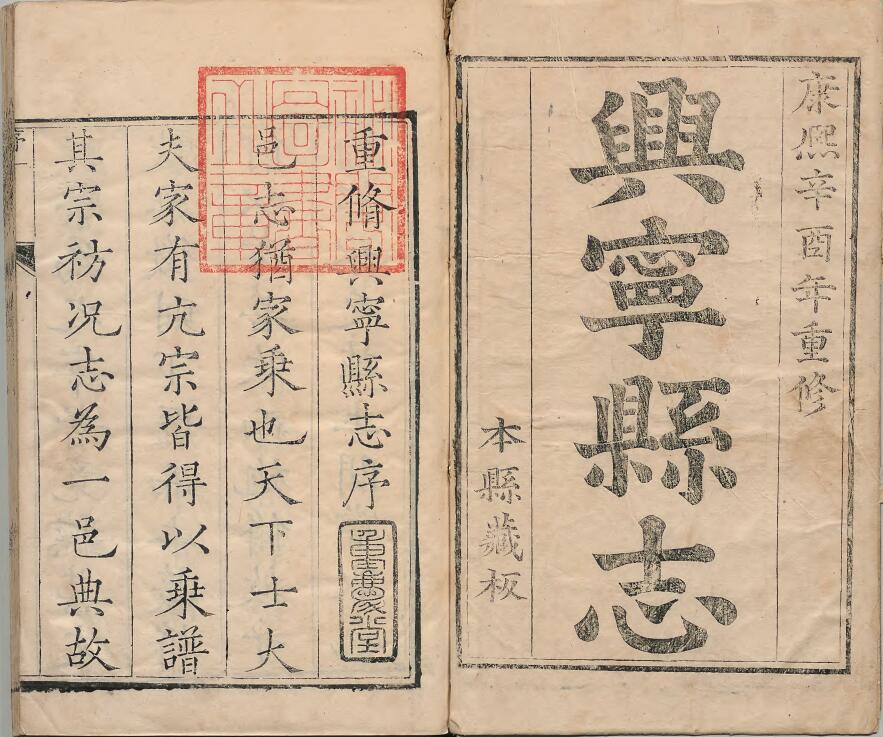 康熙辛酉年重修
興寧縣志
本縣藏板
重脩興寧縣志序
邑志猶家乘也天下士大
夫家有亢宗皆得以乘譜
其宗祊况志為一邑典故